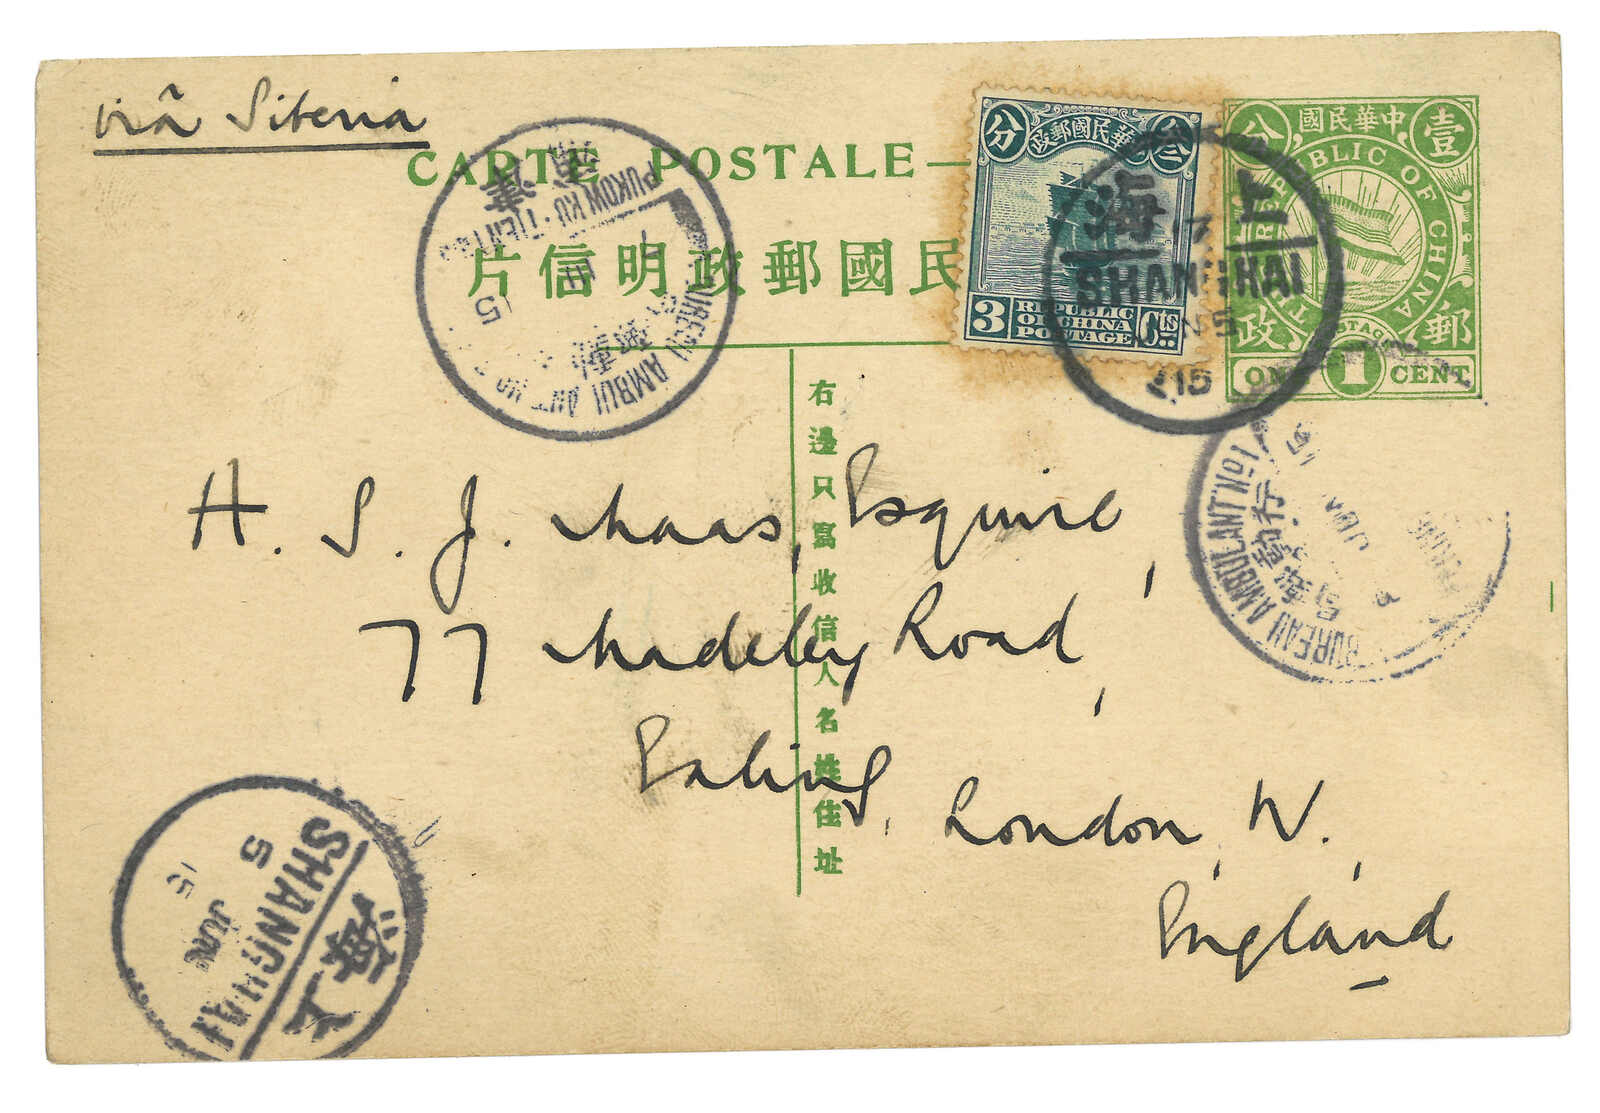 viâ Siberia
CARTE POSTALE—
片信明政郵國民
分 政郵國民華 叁
3 REPUBLIC OF CHINA POSTAGE Cts
分 國民華中 壹
REPUBLIC OF CHINA
政 郵
1 CENT
海 上
SHANGHAI
15
PUKOW KU · TIENTSIN
津
BUREAU AMBULANT No
15
BUREAU AMBULANT No 1
行動
JUN
H. S. J. Maas, Esquire,
77 Madeley Road,
Ealing,
London, W.
England
右邊只寫收信人名姓住址
SHANGHAI
上海
5
JUN
15